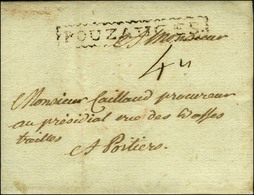 POUZAUGES
A Monsieur
4
Monsieur Caillaud procureur
au présidial rue des basses
treilles
A Poitiers